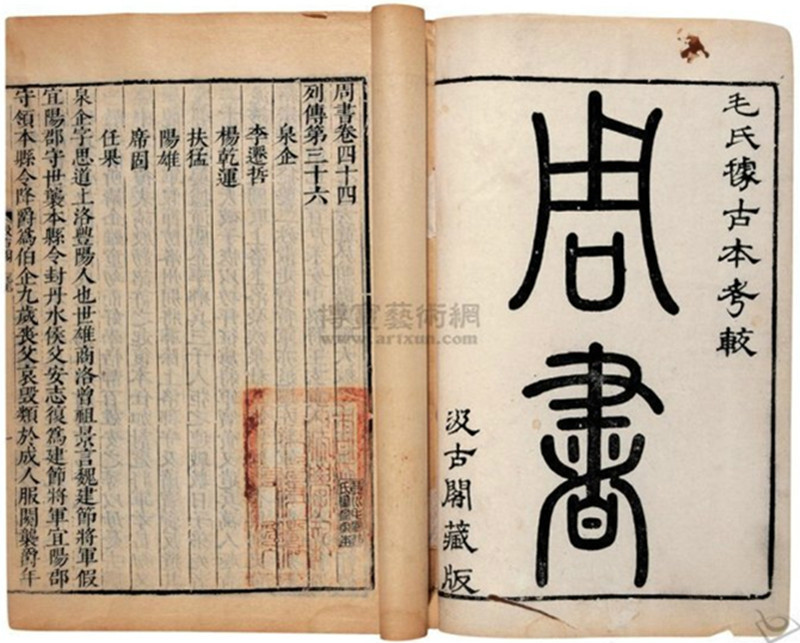 毛氏據古本考較
周書
汲古閣藏版
周書卷四十四
列傳第三十六
泉企
李遷哲
楊乾運
扶猛
陽雄
席固
任果
泉企字思道上洛豐陽人也世雄商洛曾祖景言魏建節將軍假
宜陽郡守世襲本縣令封丹水侯父安志復爲建節將軍宜陽郡
守領本縣令降爵爲伯企九歲喪父哀毀類於成人服闋襲爵年
博寶藝術網
www.artxun.com